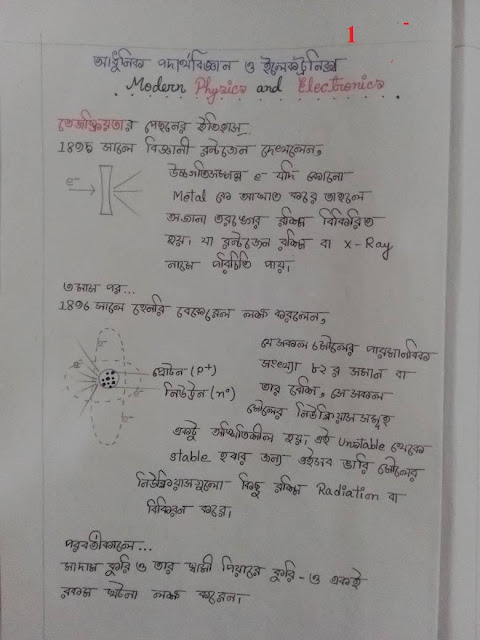 1
আধুনিক পদার্থবিজ্ঞান ও ইলেকট্রনিক্স
Modern Physics and Electronics
তেজস্ক্রিয়তার পেছনের ইতিহাস...
1895 সালে বিজ্ঞানী রন্টজেন দেখলেন,
উচ্চগতিসম্পন্ন e⁻ যদি কোনো
e⁻
Metal কে আঘাত করে তাহলে
অজানা তরঙ্গের রশ্মি বিকিরিত
হয়। যা রন্টজেন রশ্মি বা X-Ray
নামে পরিচিতি পায়।
৩মাস পর...
1896 সালে হেনরি বেকেরেল লক্ষ করলেন,
যে সকল মৌলের পারমানবিক
প্রোটন (p⁺)
সংখ্যা ৮২ র সমান বা
নিউট্রন (n⁰)
তার বেশি, সে সকল
মৌলের নিউক্লিয়াস সমূহ
একটু অস্থিতিশীল হয়। এই Unstable থেকে
stable হবার জন্য এইসব ভারি মৌলের
নিউক্লিয়াসগুলো কিছু রশ্মি Radiation বা
বিকিরন করে।
পরবর্তীকালে...
মাদাম কুরি ও তার স্বামী পিয়ারে কুরি-ও একই
রকম ঘটনা লক্ষ করেন।